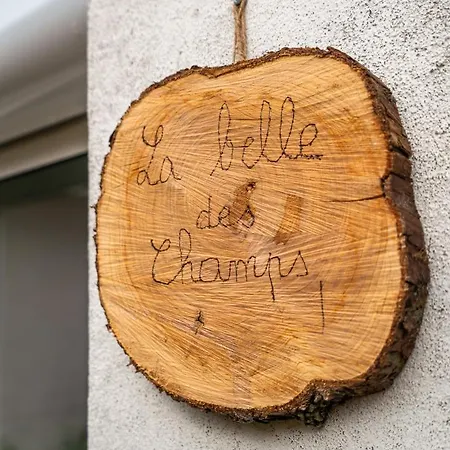 La belle
des
Champs